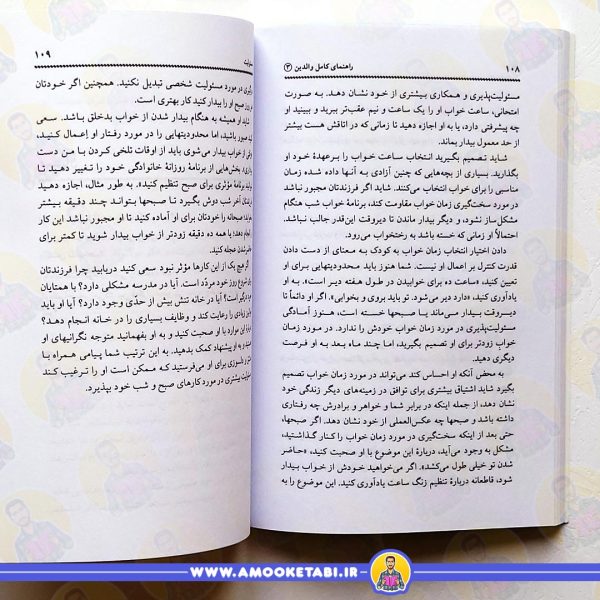 ۱۰۸ راهنمای کامل والدین (۳)
مسئولیت‌پذیری و همکاری بیشتری از خود نشان دهد. به صورت
امتحانی، ساعت خواب او را یک ساعت و نیم عقب‌تر ببرید و ببینید او
چه پیشرفتی دارد، یا به او اجازه دهید تا زمانی که در اتاقش هست بیشتر
از حد معمول بیدار بماند.
شاید تصمیم بگیرید انتخاب ساعت خواب را برعهدهٔ خود او
بگذارید. بسیاری از بچه‌هایی که چنین آزادی به آنها داده شده زمان
مناسبی را برای خواب انتخاب می‌کنند. شاید اگر فرزندتان مجبور نباشد
در مورد سخت‌گیری زمان خواب مقاومت کند، برنامهٔ خواب شب هنگام
مشکل‌ساز نشود، و دیگر بیدار ماندن تا دیروقت این‌قدر جالب نباشد.
احتمالاً او زمانی که خسته باشد به رختخواب می‌رود.
دادن اختیار انتخاب زمان خواب به کودک به معنای از دست دادن
قدرت کنترل بر اعمال او نیست. شما هنوز باید محدودیتهایی برای او
تعیین کنید، «ساعت ده برای خوابیدن در طول هفته دیر است». به او
یادآوری کنید، «دارد دیر می‌شود. تو باید بروی و بخوابی». اگر او دائماً تا
دیروقت بیدار می‌ماند یا صبحها خسته است، هنوز آمادگی
مسئولیت‌پذیری در مورد زمان خواب خودش را ندارد. در مورد زمان
خواب زودتر برای او تصمیم بگیرید، اما چند ماه بعد به او فرصت
دیگری دهید.
به محض آنکه او احساس کند می‌تواند در مورد زمان خواب تصمیم
بگیرد شاید اشتیاق بیشتری برای توافق در زمینه‌های دیگر زندگی خود
نشان دهد، از جمله اینکه در برابر شما و خواهر و برادرش چه رفتاری
داشته باشد و صبحها چه عکس‌العملی از خود نشان دهد. اگر صبحها،
حتی بعد از اینکه سخت‌گیری در مورد زمان خواب را کنار گذاشتید،
مشکل به وجود می‌آید، دربارهٔ این موضوع با او صحبت کنید، «حاضر
شدن تو خیلی طول می‌کشد». اگر می‌خواهید خودش از خواب بیدار
شود، قاطعانه دربارهٔ تنظیم زنگ ساعت یادآوری کنید. این موضوع را به
۱۰۹
در مورد مسئولیت شخصی تبدیل نکنید. همچنین اگر خودتان
صبح او را بیدار کنید کار بهتری است.
او همیشه به هنگام بیدار شدن از خواب بدخلق باشد. سعی
صبور باشید، اما محدودیتهایی را در مورد رفتار او اِعمال کنید،
از خواب بیدار می‌شوی باید از اوقات تلخی کردن با من دست
بخش‌هایی از برنامهٔ روزانهٔ خانوادگی خود را تغییر دهید تا
برنامهٔ مؤثری برای صبح تنظیم کنید. به طور مثال، اجازه دهید
آخر شب دوش بگیرد تا صبحها بتواند چند دقیقه بیشتر
صبحانه را خودتان برای او آماده کنید تا او مجبور نباشد این کار
دهد؛ یا همه ده دقیقه زودتر از خواب بیدار شوید تا کمتر برای
شدن عجله کنید.
هیچ یک از این کارها مؤثر نبود سعی کنید دریابید چرا فرزندتان
روز مردّد است. آیا در مدرسه مشکلی دارد؟ با همتایان
است؟ آیا در خانه تنش بیش از حدّی وجود دارد؟ آیا او باید
زندگی کند و وظایف بسیاری را در خانه انجام دهد؟
این موارد با او صحبت کنید و به او بفهمانید متوجه نگرانیهای او
به او پیشنهاد کمک بدهید. به این ترتیب شما پیامی همراه با
دلسوزی برای او می‌فرستید که ممکن است او را ترغیب کند
بیشتری در مورد کارهای صبح و شب خود بپذیرد.
WWW.AMOOKETABI.IR